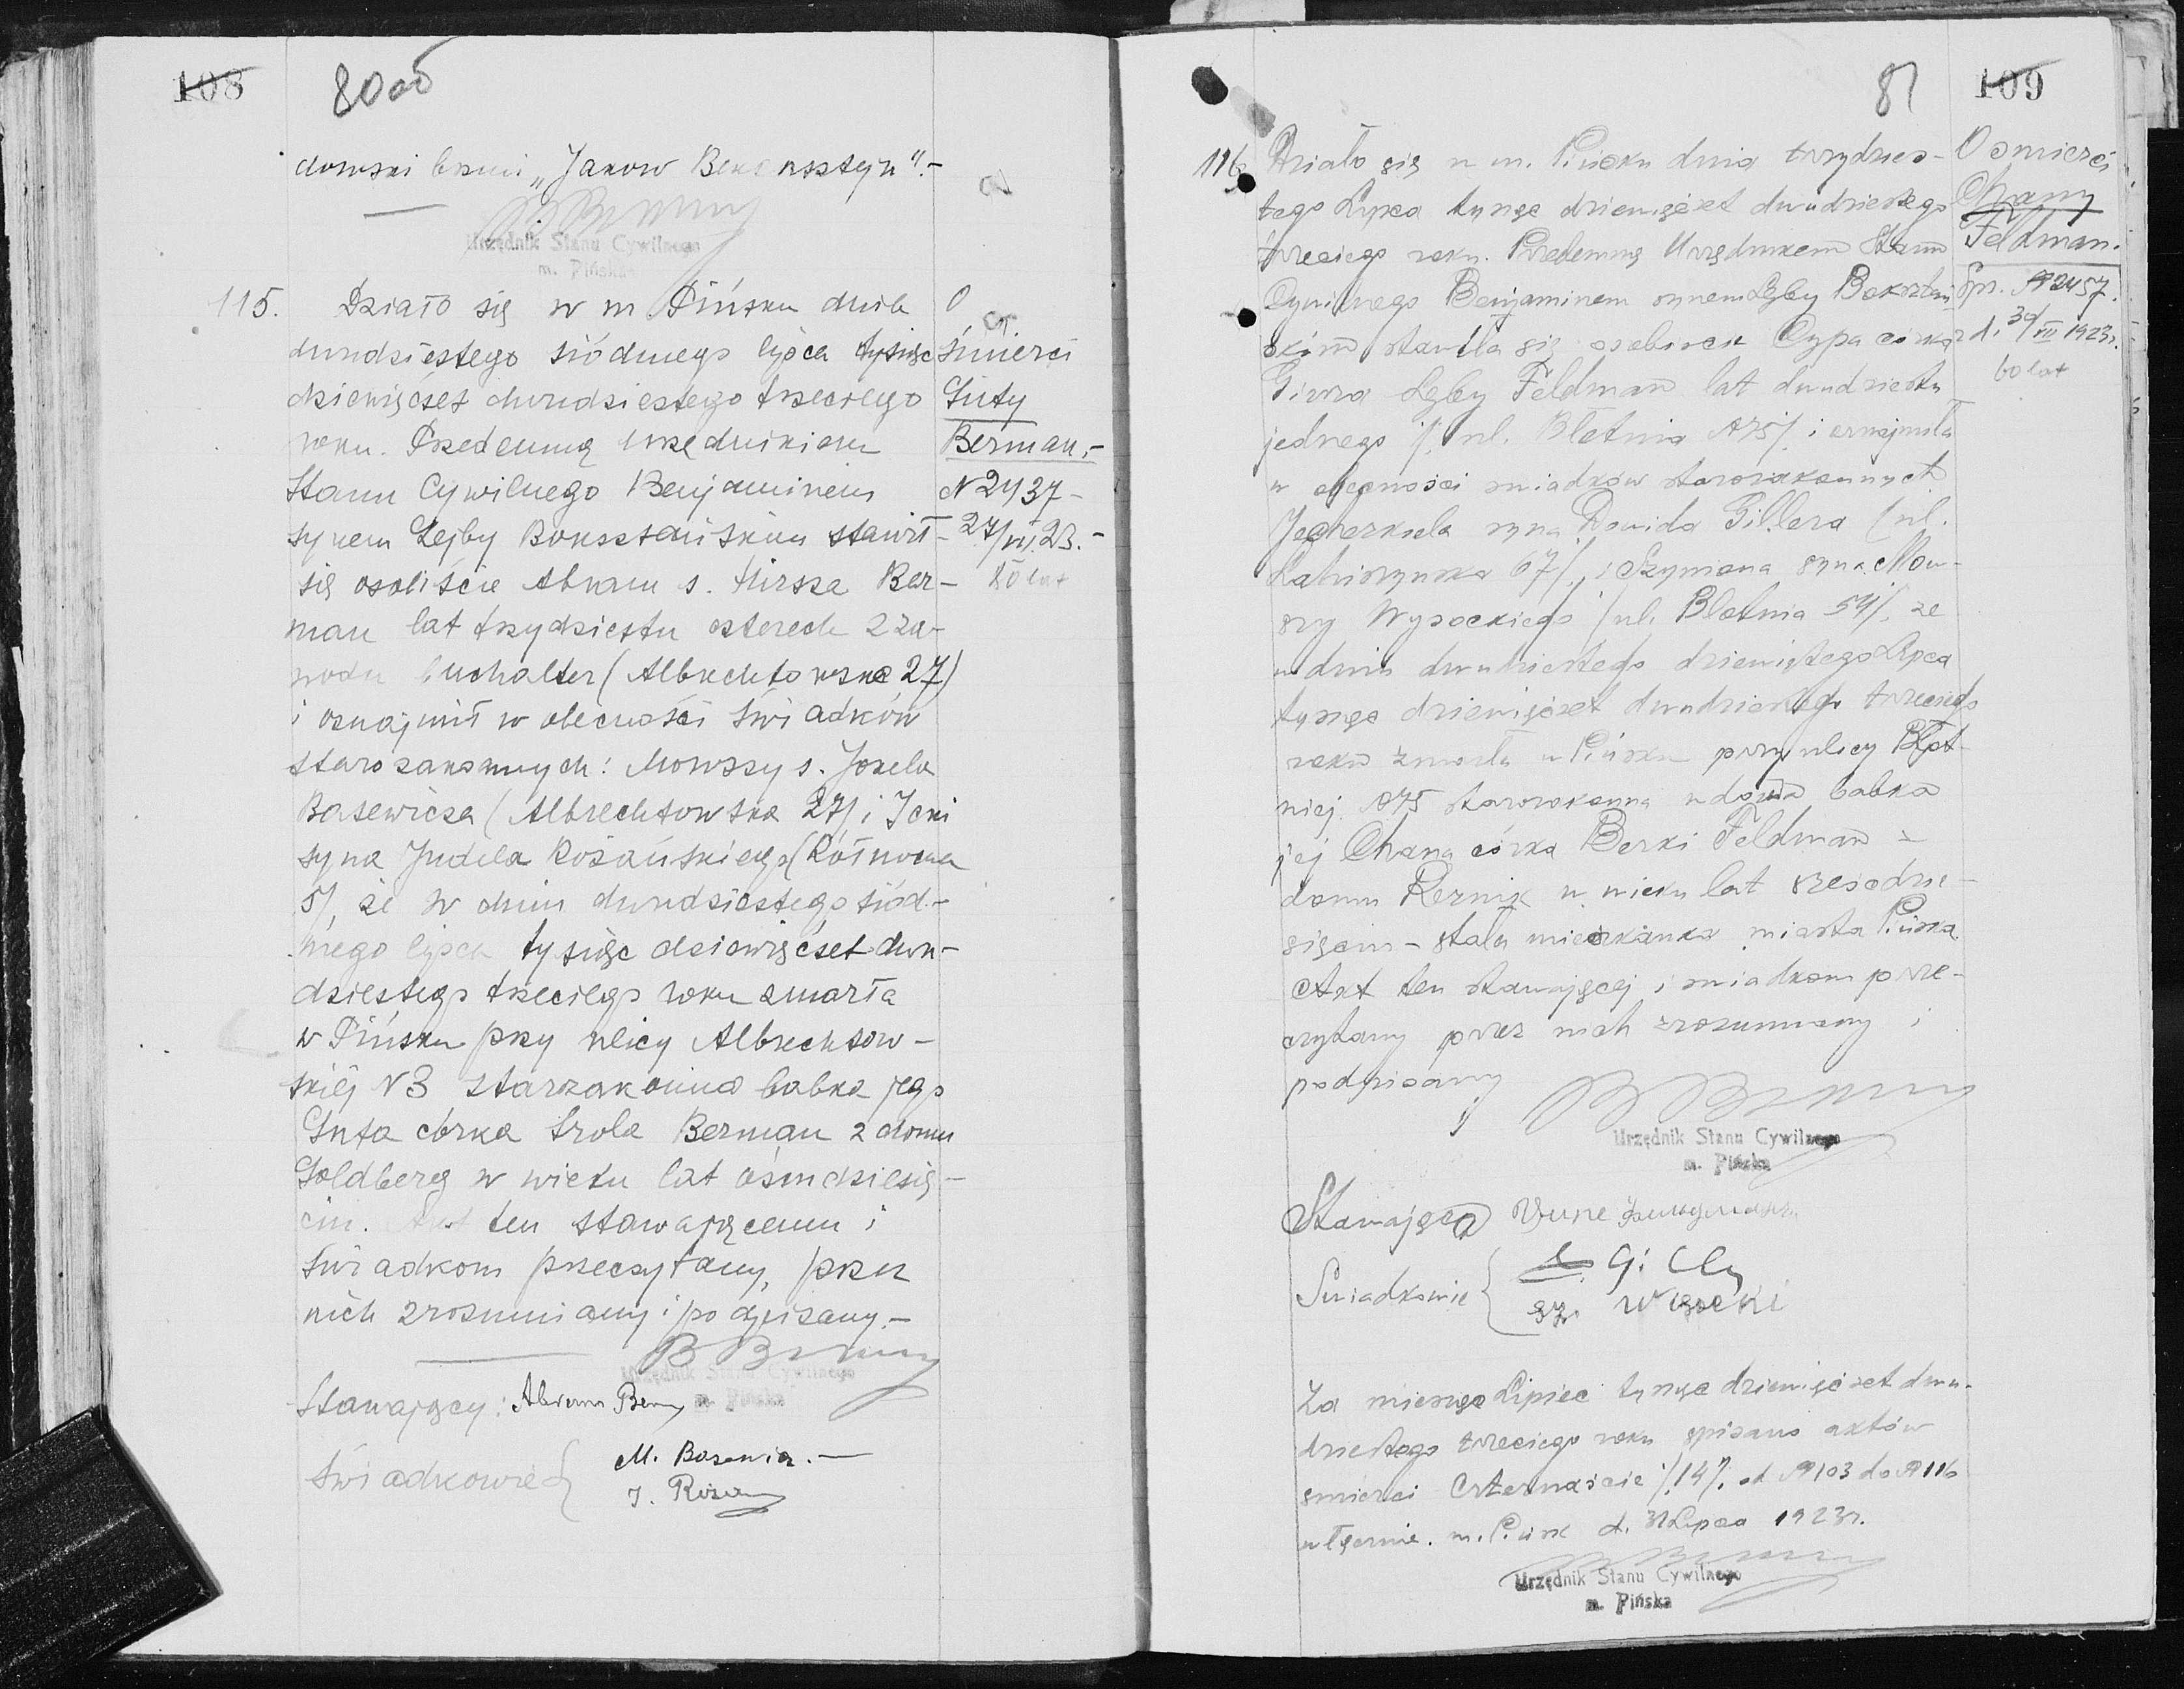 108
80об
dowski brzmi „Jakow Beksztejn".-
Urzędnik Stanu Cywilnego
m. Pińska
115.
Działo się w m. Pińsku dnia
dwudziestego siódmego lipca tysiąc
dziewięćset dwudziestego trzeciego
roku. Przedemną urzędnikiem
Stanu Cywilnego Benjaminem
synem Lejby Boksztańskim stawił
się osobiście Abram s. Hirsza Ber-
man lat trzydziestu czterech z za-
wodu buchalter (Albrechtowska 27)
i oznajmił w obecności świadków
starozakonnych: Mowszy s. Josela
Basewicza (Albrechtowska 27) i Icki
syna Judela Rożańskiego (Rółnowa
5/, że w dniu dwudziestego siód-
mego lipca tysiąc dziewięćset dwu-
dziestego trzeciego roku zmarła
w Pińsku przy ulicy Albrechtow-
skiej N3 starzakonna babka jego
Guta córka Srola Berman z domu
Goldberg w wieku lat ośmdziesię-
ciu. Akt ten stawającemu i
świadkom przeczytany, przez
nich zrozumiany i podpisany.-
Urzędnik Stanu Cywilnego
m. Pińska
Stawający: Abram Berm
Świadkowie
M. Basewicz.-
J. Rożań
O
śmierci
Guty
Berman.-
N 2437-
27/VII.23.-
80 lat
81
109
116
Działo się w m. Pińsku dnia trzydzies-
tego Lipca tysiąc dziewięćset dwudziestego
trzeciego roku. Przedemną Urzędnikiem Stanu
Cywilnego Benjaminem synem Lejby Boksztań-
skim stawiła się osobiście Cypa córka
Lejby Feldman lat dwudziestu
jednego /ul. Błotnia N75/ i oznajmiła
w obecności świadków starozakonnych
Jecherkiela syna Dawida Gillera /ul.
Łahiszyńska 67/, i Szymona syna Mow-
szy Wysockiego /ul. Błotnia 54/, że
w dniu dwudziestego dziewiątego Lipca
tysiąc dziewięćset dwudziestego trzeciego
roku zmarła w Pińsku przy ulicy Błot-
niej N75 starozakonna wdowa babka
jej Chana córka Berki Feldman z
domu Reznik w wieku lat sześćdzie-
sięciu - stała mieszkanka miasta Pińska
Akt ten stawającej i świadkom prze-
czytany przez nich zrozumiany i
podpisany
Urzędnik Stanu Cywilnego
m. Pińska
Stawająca
Świadkowie
Sz. Wysocki
Za miesiąc Lipiec tysiąc dziewięćset dwu-
dziestego trzeciego roku spisano aktów
śmierci Czternaście /14/, od N103 do N116
włącznie. m. Pińsk d. 31 Lipca 1923r.
Urzędnik Stanu Cywilnego
m. Pińska
O śmierci
Chany
Feldman.
Spr. N2457.
z d. 30/VII 1923r.
60 lat